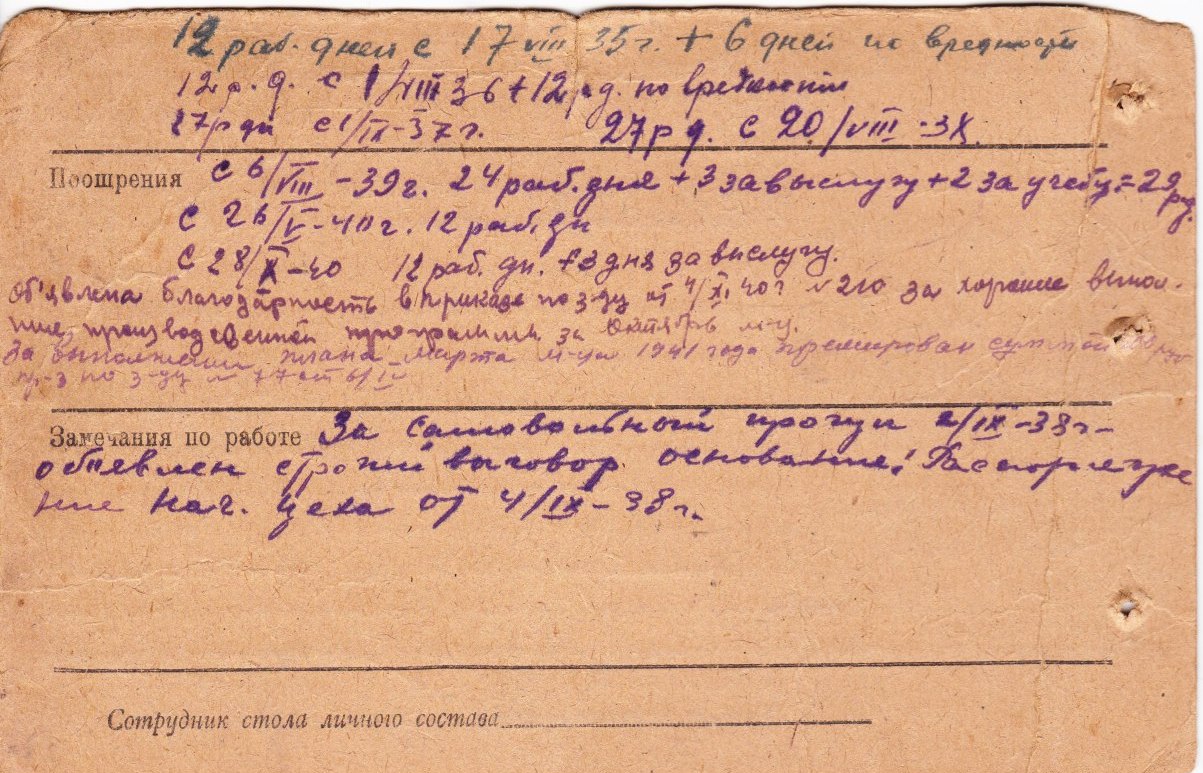 12 раб. дней с 17 VIII 35 г. + 6 дней по вредности
12 р. д. с 1/VIII 36 + 12 р д. по вредности
27 р дн с 1/IX-37 г. 27 р д. с 20/VIII-38.
Поощрения с 6/VIII-39 г. 24 раб. дня + 3 за выслугу + 2 за учебу = 29 рд.
с 26/V-40 г. 12 раб. дн
с 28/X-40 12 раб. дн. + 3 дня за выслугу.
Об'явлена благодарность в приказе по з-ду от 4/XI 40 г № 210 за хорошие выпол-
ние производственной программы за Октябрь м-ц.
За выполнение плана Марта м-ца 1941 года премирован суммой
пр-з по з-ду № 77 от 6/IV
Замечания по работе За самовольный прогул 2/IX-38 г-
объявлен строгий выговор. основание: Распоряже
ние нач. цеха от 4/IX-38 г.
Сотрудник стола личного состава